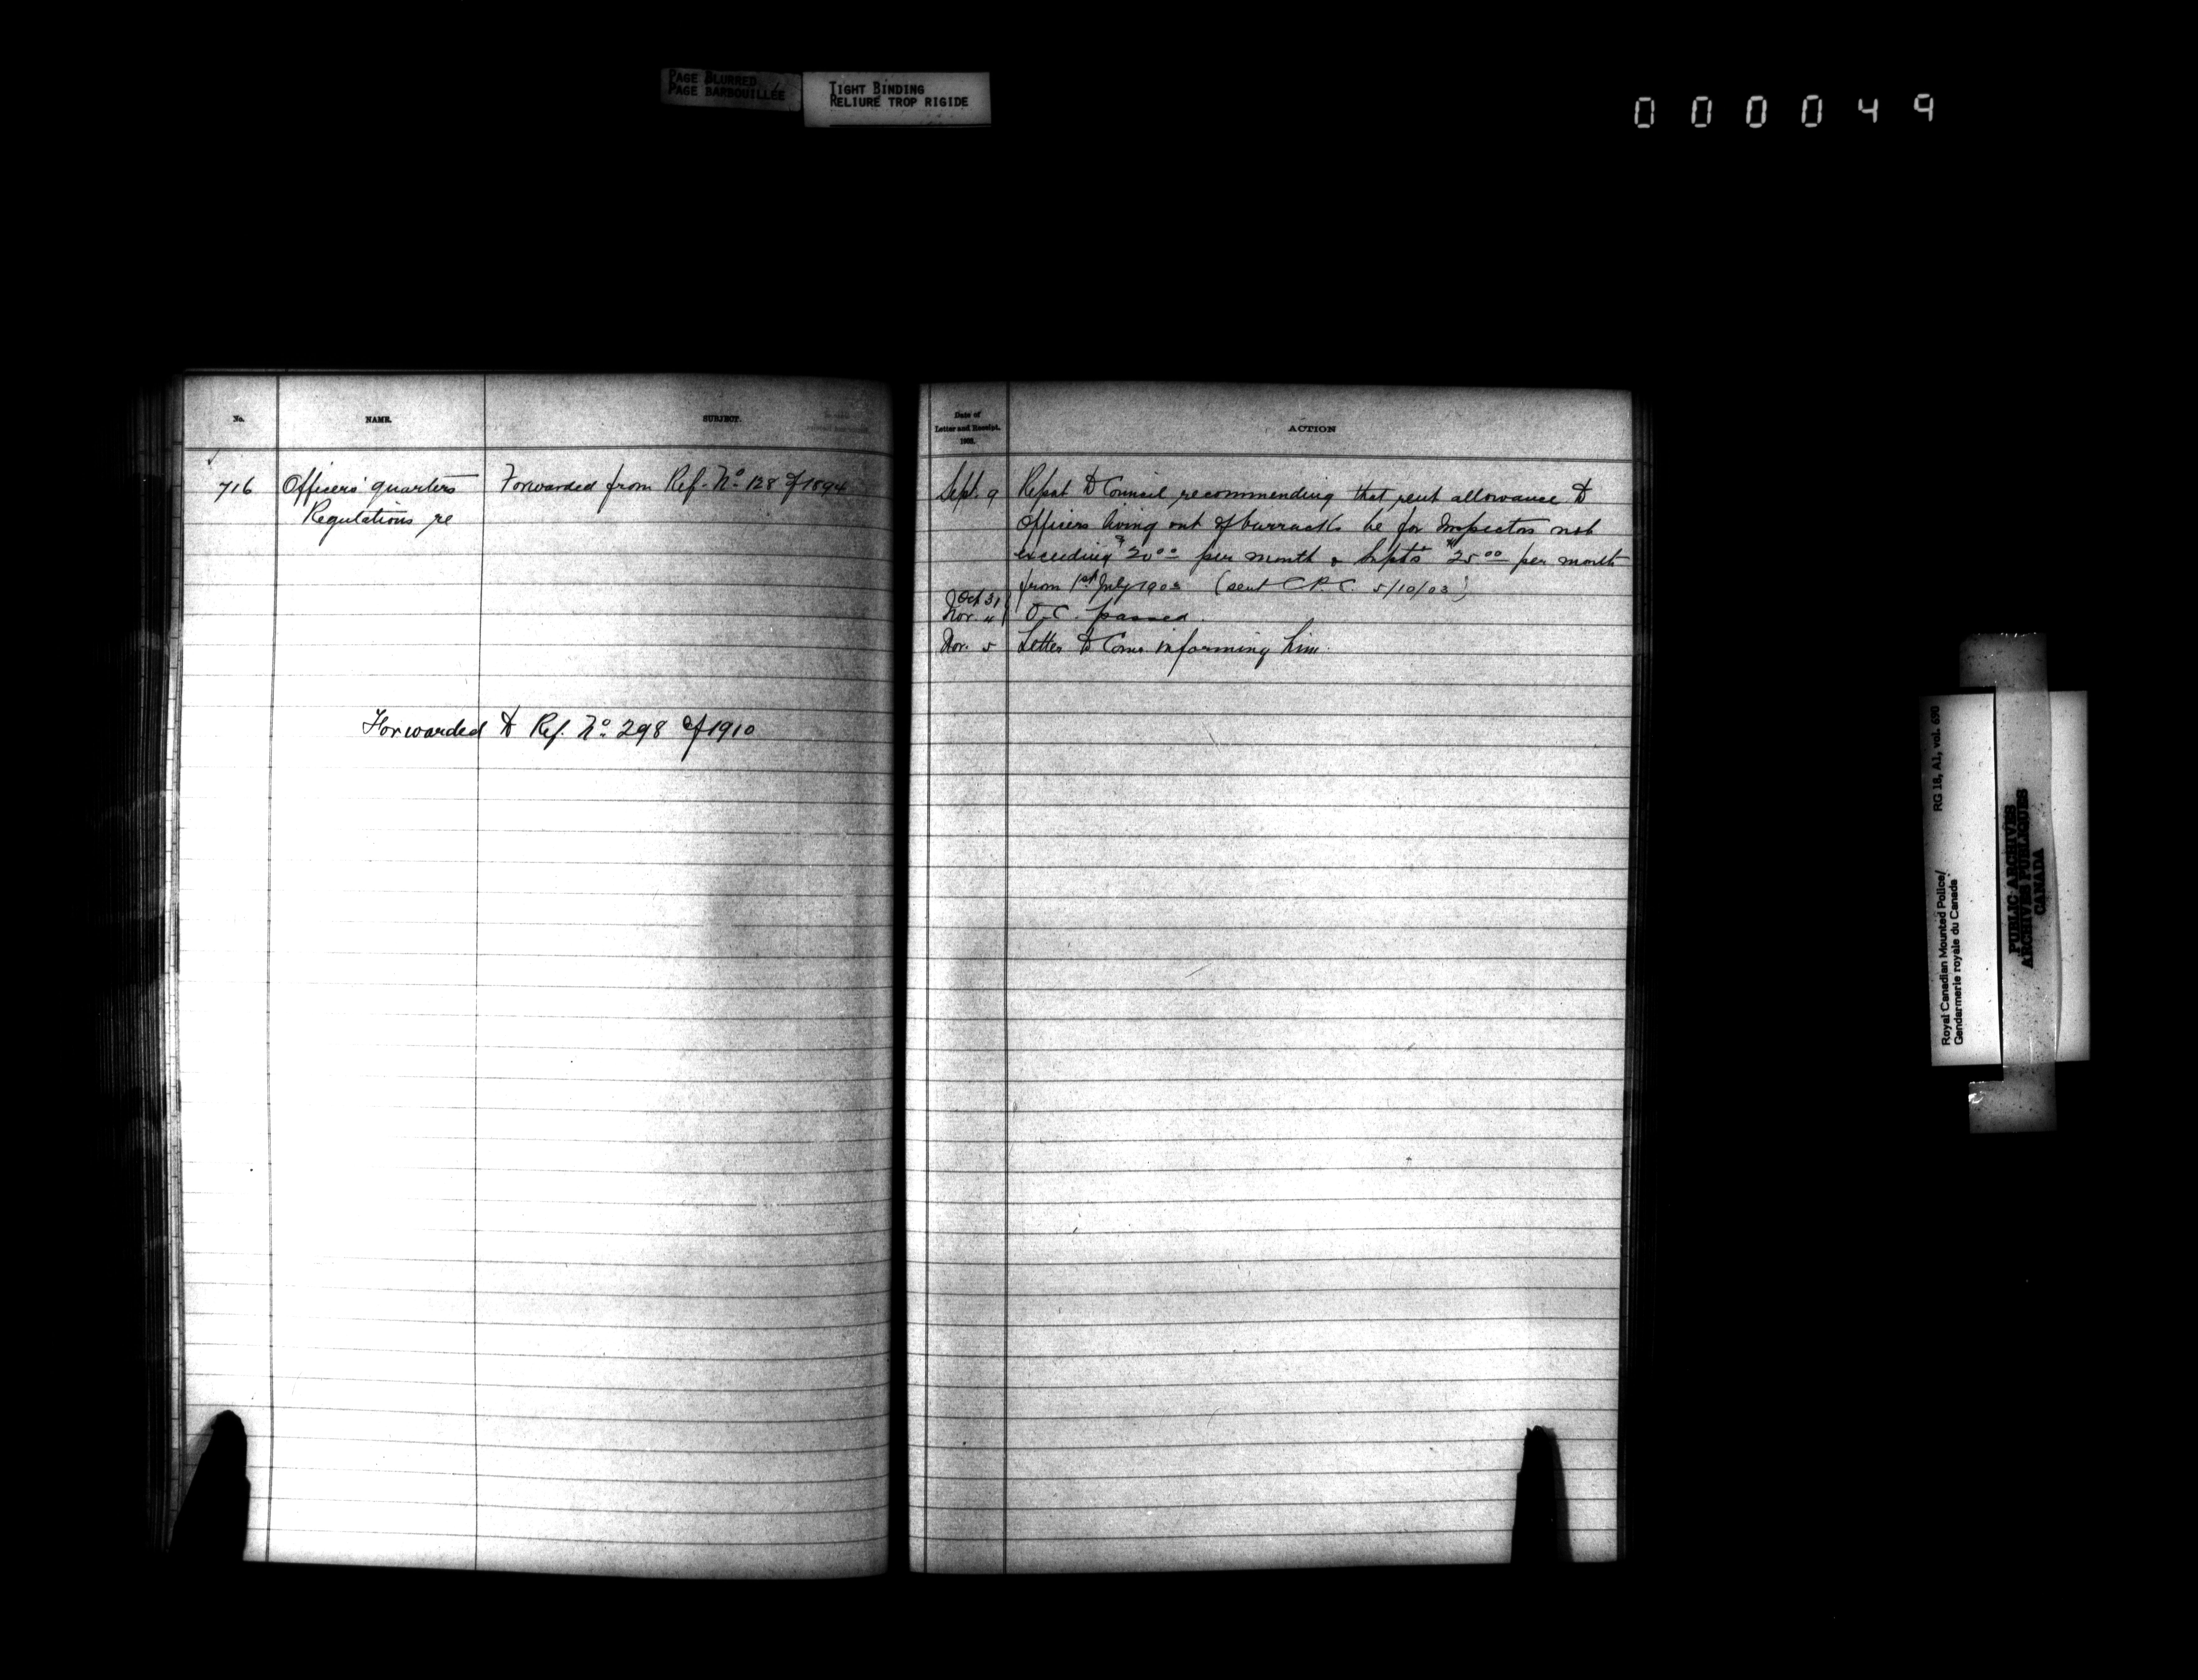 PAGE BLURRED
PAGE BARBOUILLÉE
TIGHT BINDING
RELIURE TROP RIGIDE
000049
No.
NAME.
SUBJECT.
716
Officers' quarters
Regulations re
Forwarded from Ref. No. 128 of 1894
Forwarded to Ref. No. 298 of 1910
Date of
Letter and Receipt.
ACTION
Sept. 9 Report to Council recommending that rent allowance to
Officers living out of barracks be for Inspectors not
exceeding $20.00 per month & Supts $25.00 per month
from 1st July 1903 (sent C.P.C. 5/10/03)
Oct 31
Nov. 4 O.C. passed.
Nov. 5 Letter to Comr informing him.
Royal Canadian Mounted Police/
Gendarmerie royale du Canada
RG 18, A1, vol. 690
PUBLIC ARCHIVES
ARCHIVES PUBLIQUES
CANADA